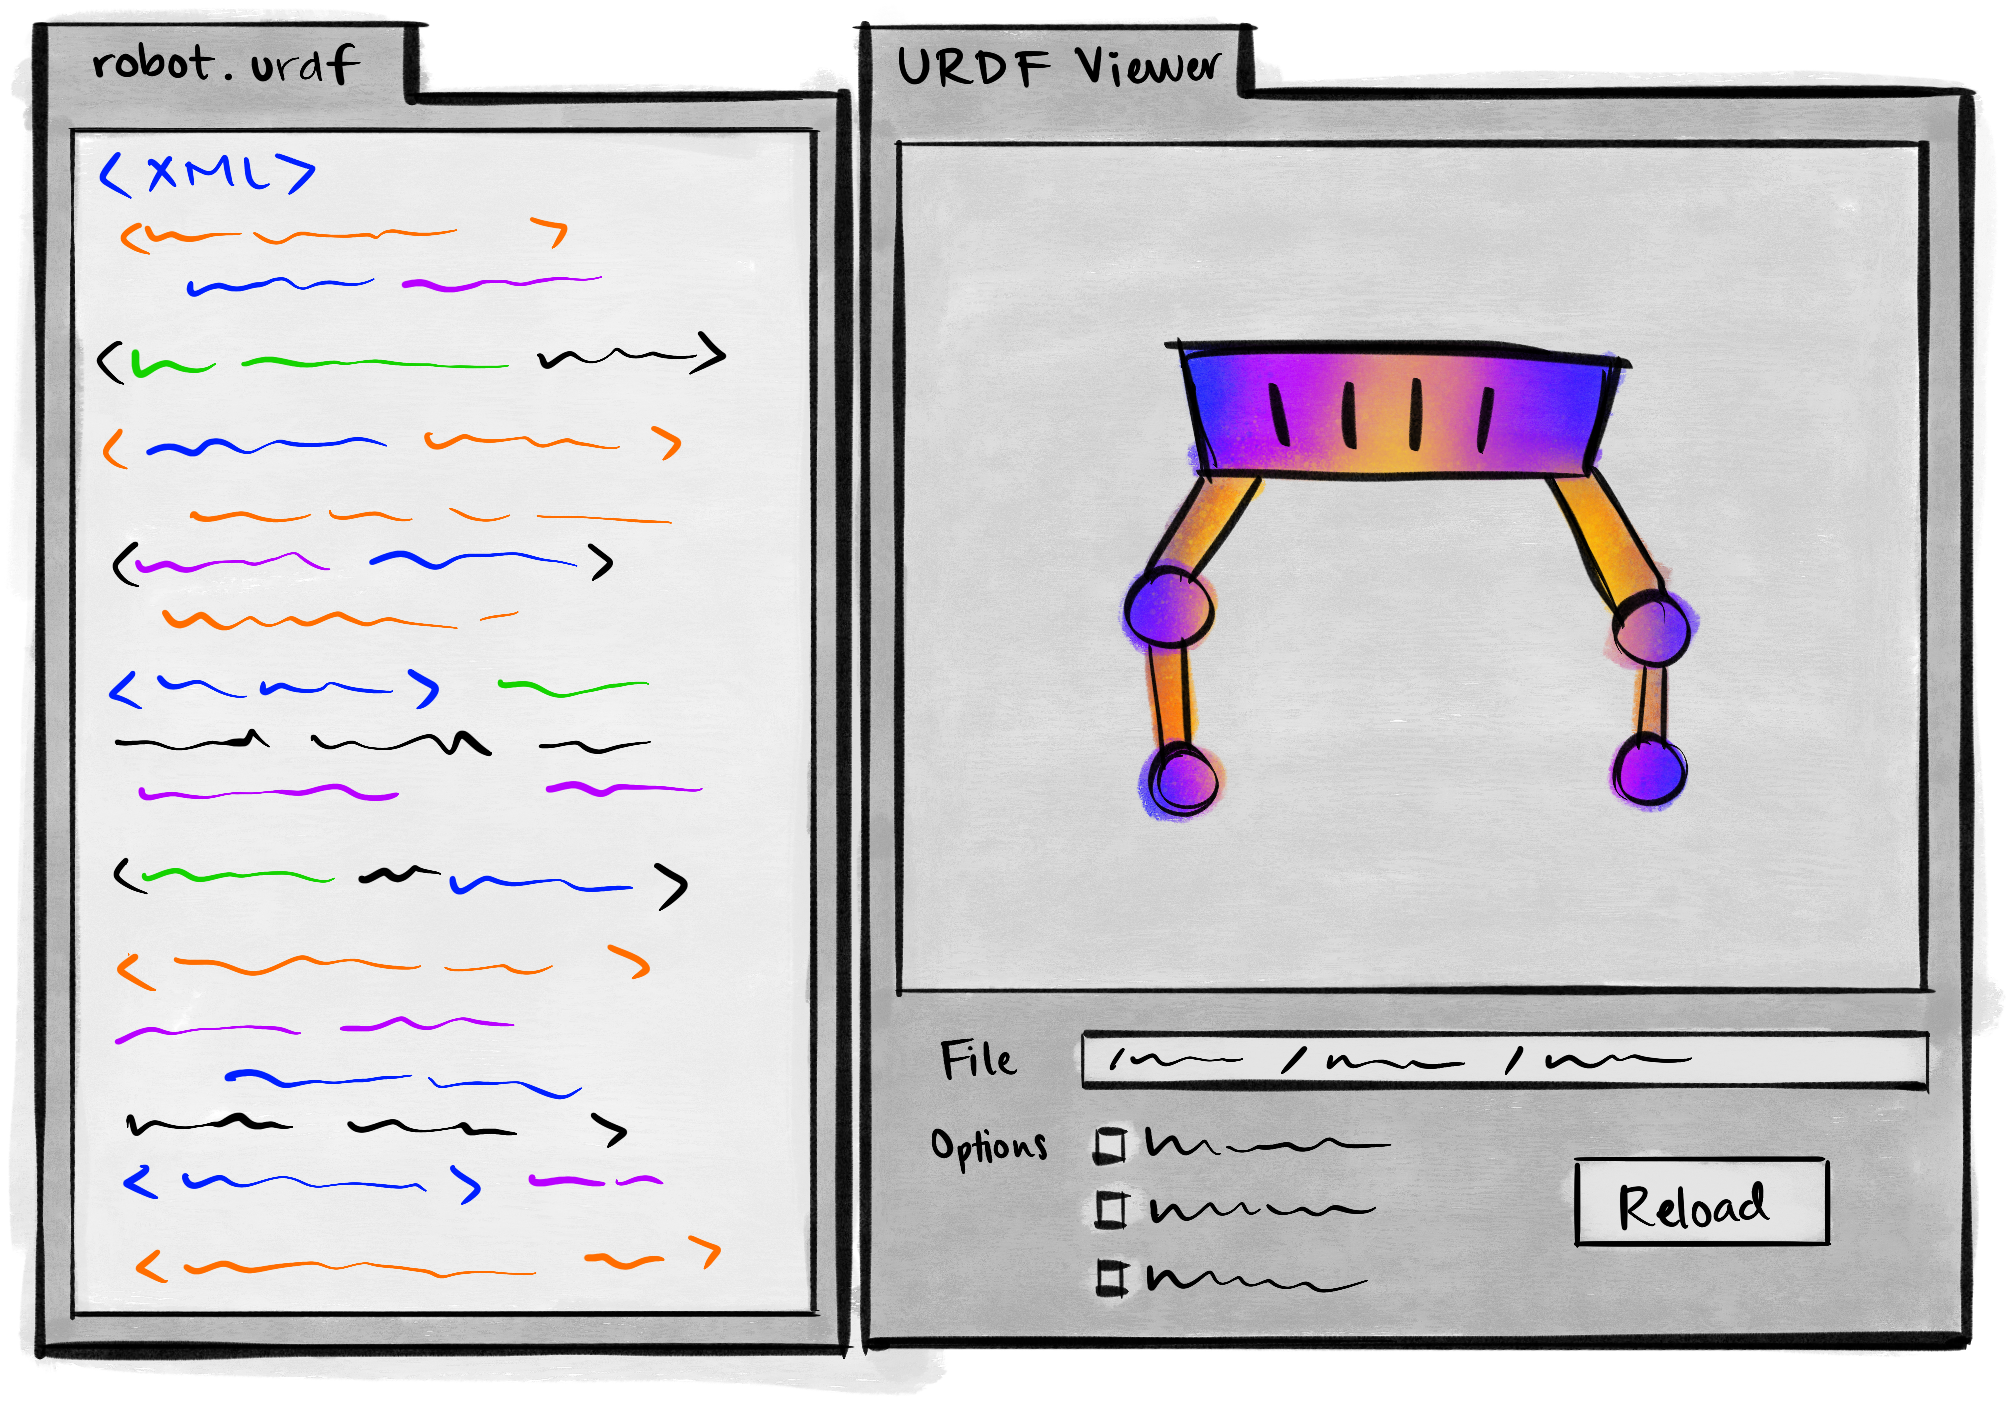 robot.urdf
<XML>
URDF Viewer
File
Options
Reload